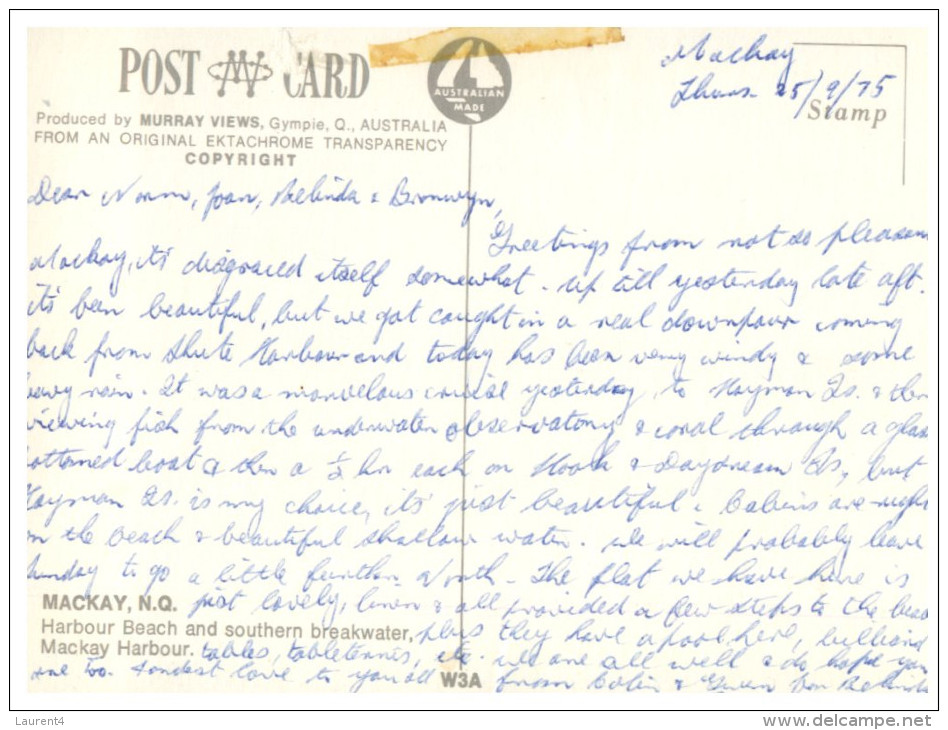 POST CARD
AUSTRALIAN MADE
Mackay
Thurs. 25/9/75
Stamp
Produced by MURRAY VIEWS, Gympie, Q., AUSTRALIA
FROM AN ORIGINAL EKTACHROME TRANSPARENCY
COPYRIGHT
Dear Norm, Joan, Belinda & Bronwyn,
Greetings from not so pleasant
Mackay, it's disgraced itself somewhat - up till yesterday late aft.
it's been beautiful, but we got caught in a real downpour coming
back from Shute Harbour and today has been very windy & some
heavy rain. It was a marvellous cruise yesterday, to Hayman Is. & then
viewing fish from the underwater observatory & coral through a glass
bottomed boat & then a ½ hr each on Hook & Daydream Is, but
Hayman Is. is my choice, it's just beautiful & Cabins are right
on the beach & beautiful shallow water. We will probably leave
Sunday to go a little further North - The flat we have here is
just lovely, linen & all provided a few steps to the beach
plus they have a pool here, billiard
tables, tabletennis, etc. we are all well & do hope you
are too. Fondest love to you all from Colin & Gwen
MACKAY, N.Q.
Harbour Beach and southern breakwater,
Mackay Harbour.
W3A
Laurent4
www.delcampe.net